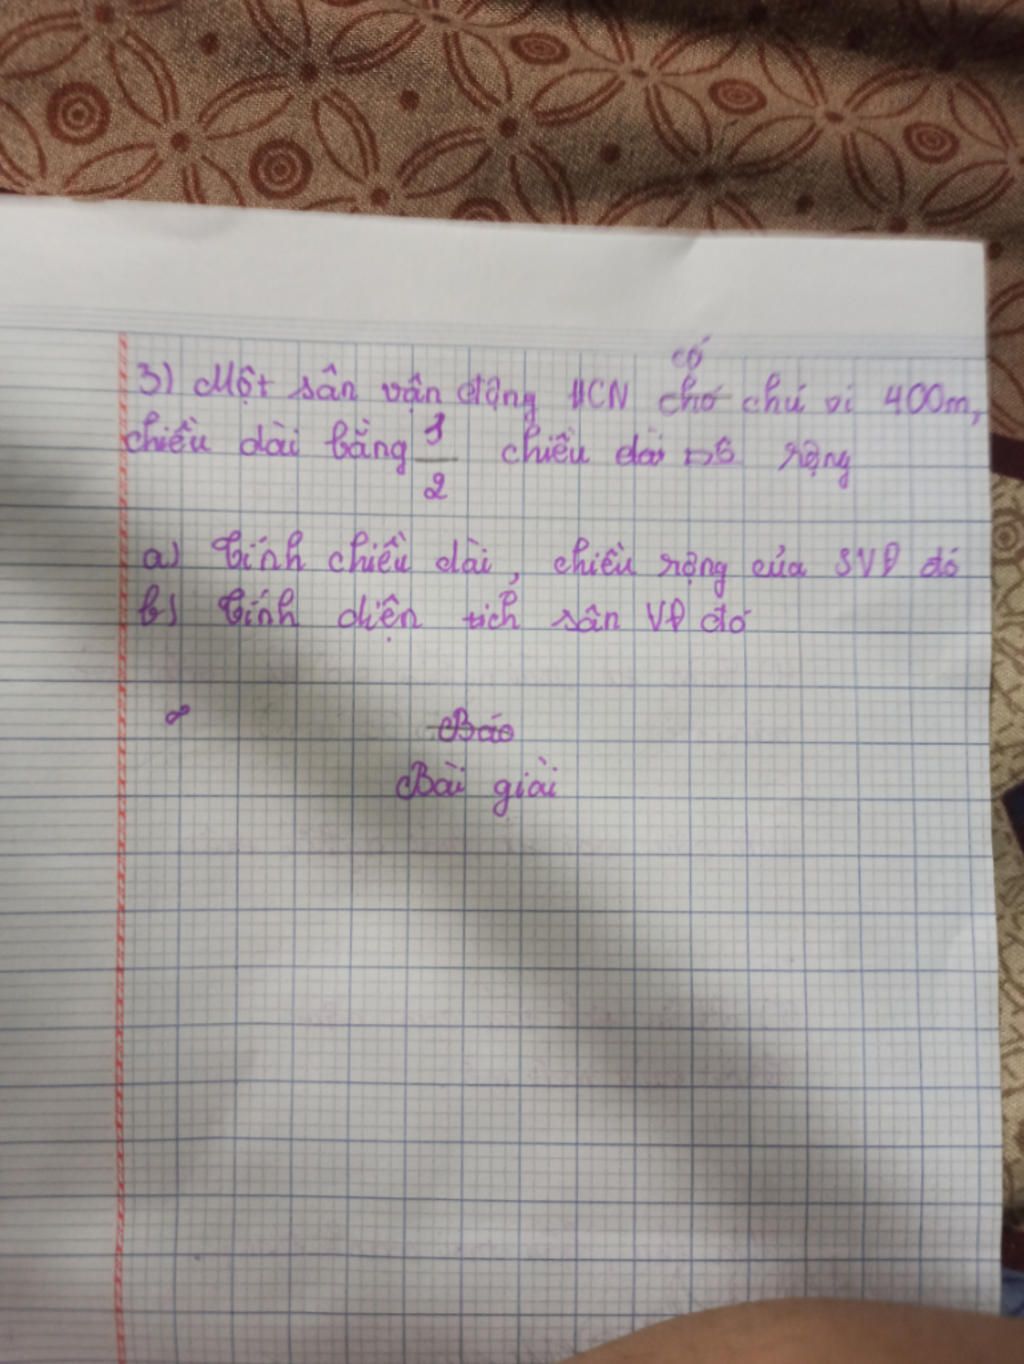 có
3) Một sân vận động HCN chó chú vi 400m,
chiều dài bằng 3/2 chiều dài rộng
a) Tính chiều dài, chiều rộng của SVĐ đó
b) Tính diện tích sân VĐ đó
Báo
Bài giải